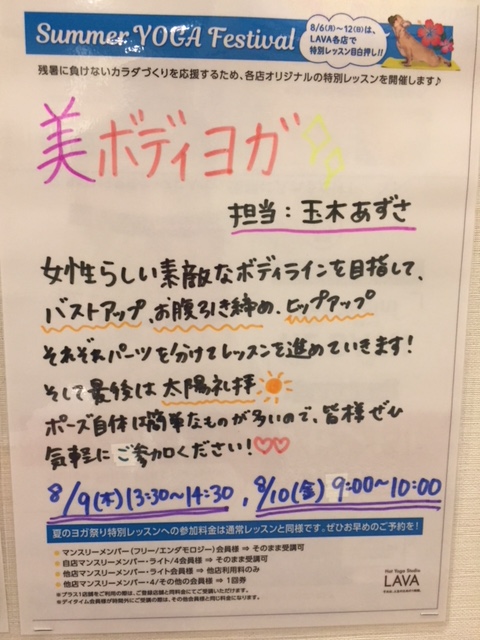 Summer YOGA Festival
8/6(月)～12(日)は、
LAVA各店で
特別レッスン目白押し!!
残暑に負けないカラダづくりを応援するため、各店オリジナルの特別レッスンを開催します♪
美ボディヨガ
担当：玉木あずさ
女性らしい素敵なボディラインを目指して、
バストアップ、お腹引き締め、ヒップアップ
それぞれパーツを分けてレッスンを進めていきます!
そして最後は太陽礼拝
ポーズ自体は簡単なものが多いので、皆様ぜひ
気軽にご参加ください!♡♡
8/9(木)13:30～14:30、8/10(金)9:00～10:00
夏のヨガ祭り特別レッスンへの参加料金は通常レッスンと同様です。ぜひお早めのご予約を!
● マンスリーメンバー(フリー/エンダモロジー)会員様 ⇒ そのまま受講可
● 自店マンスリーメンバー・ライト/4会員様 ⇒ そのまま受講可
● 他店マンスリーメンバー・ライト会員様 ⇒ 他店利用料のみ
● 他店マンスリーメンバー・4/その他の会員様 ⇒ 1回券
※プラス1店舗をご利用の際は、ご登録店舗と同料金にてご受講いただけます。
※デイタイム会員様が時間外にご受講の際は、その他会員様と同じ料金になります。
Hot Yoga Studio
LAVA